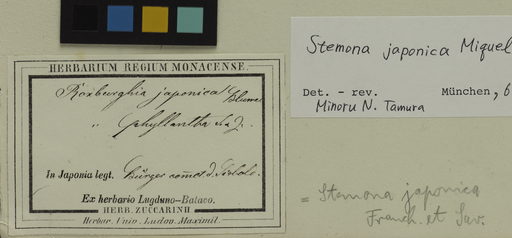 HERBARIUM REGIUM MONACENSE.
Roxburghia japonica Blume
" phyllantha
In Japonia legt. Bürger
Ex herbario Lugduno-Batavo.
HERB. ZUCCARINII
Herbar. Univ. Ludov. Maximil.
Stemona japonica Miquel
Det. - rev. München, 6
Minoru N. Tamura
= Stemona japonica
Franch. et Sav.